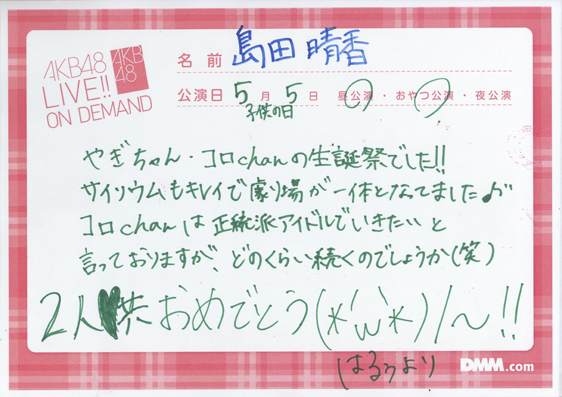 AKB48
LIVE!!
ON DEMAND
AKB
48
名前 島田晴香
公演日 5月5日 昼公演・おやつ公演・夜公演
子供の日
やぎちゃん・コロchanの生誕祭でした!!
サイリウムもキレイで劇場が一体となってました♪
コロchanは正統派アイドルでいきたいと
言っておりますが、どのくらい続くのでしょうか(笑)
2人♥共おめでとう(*'ω'*)/~!!
はるぅより
DMM.com